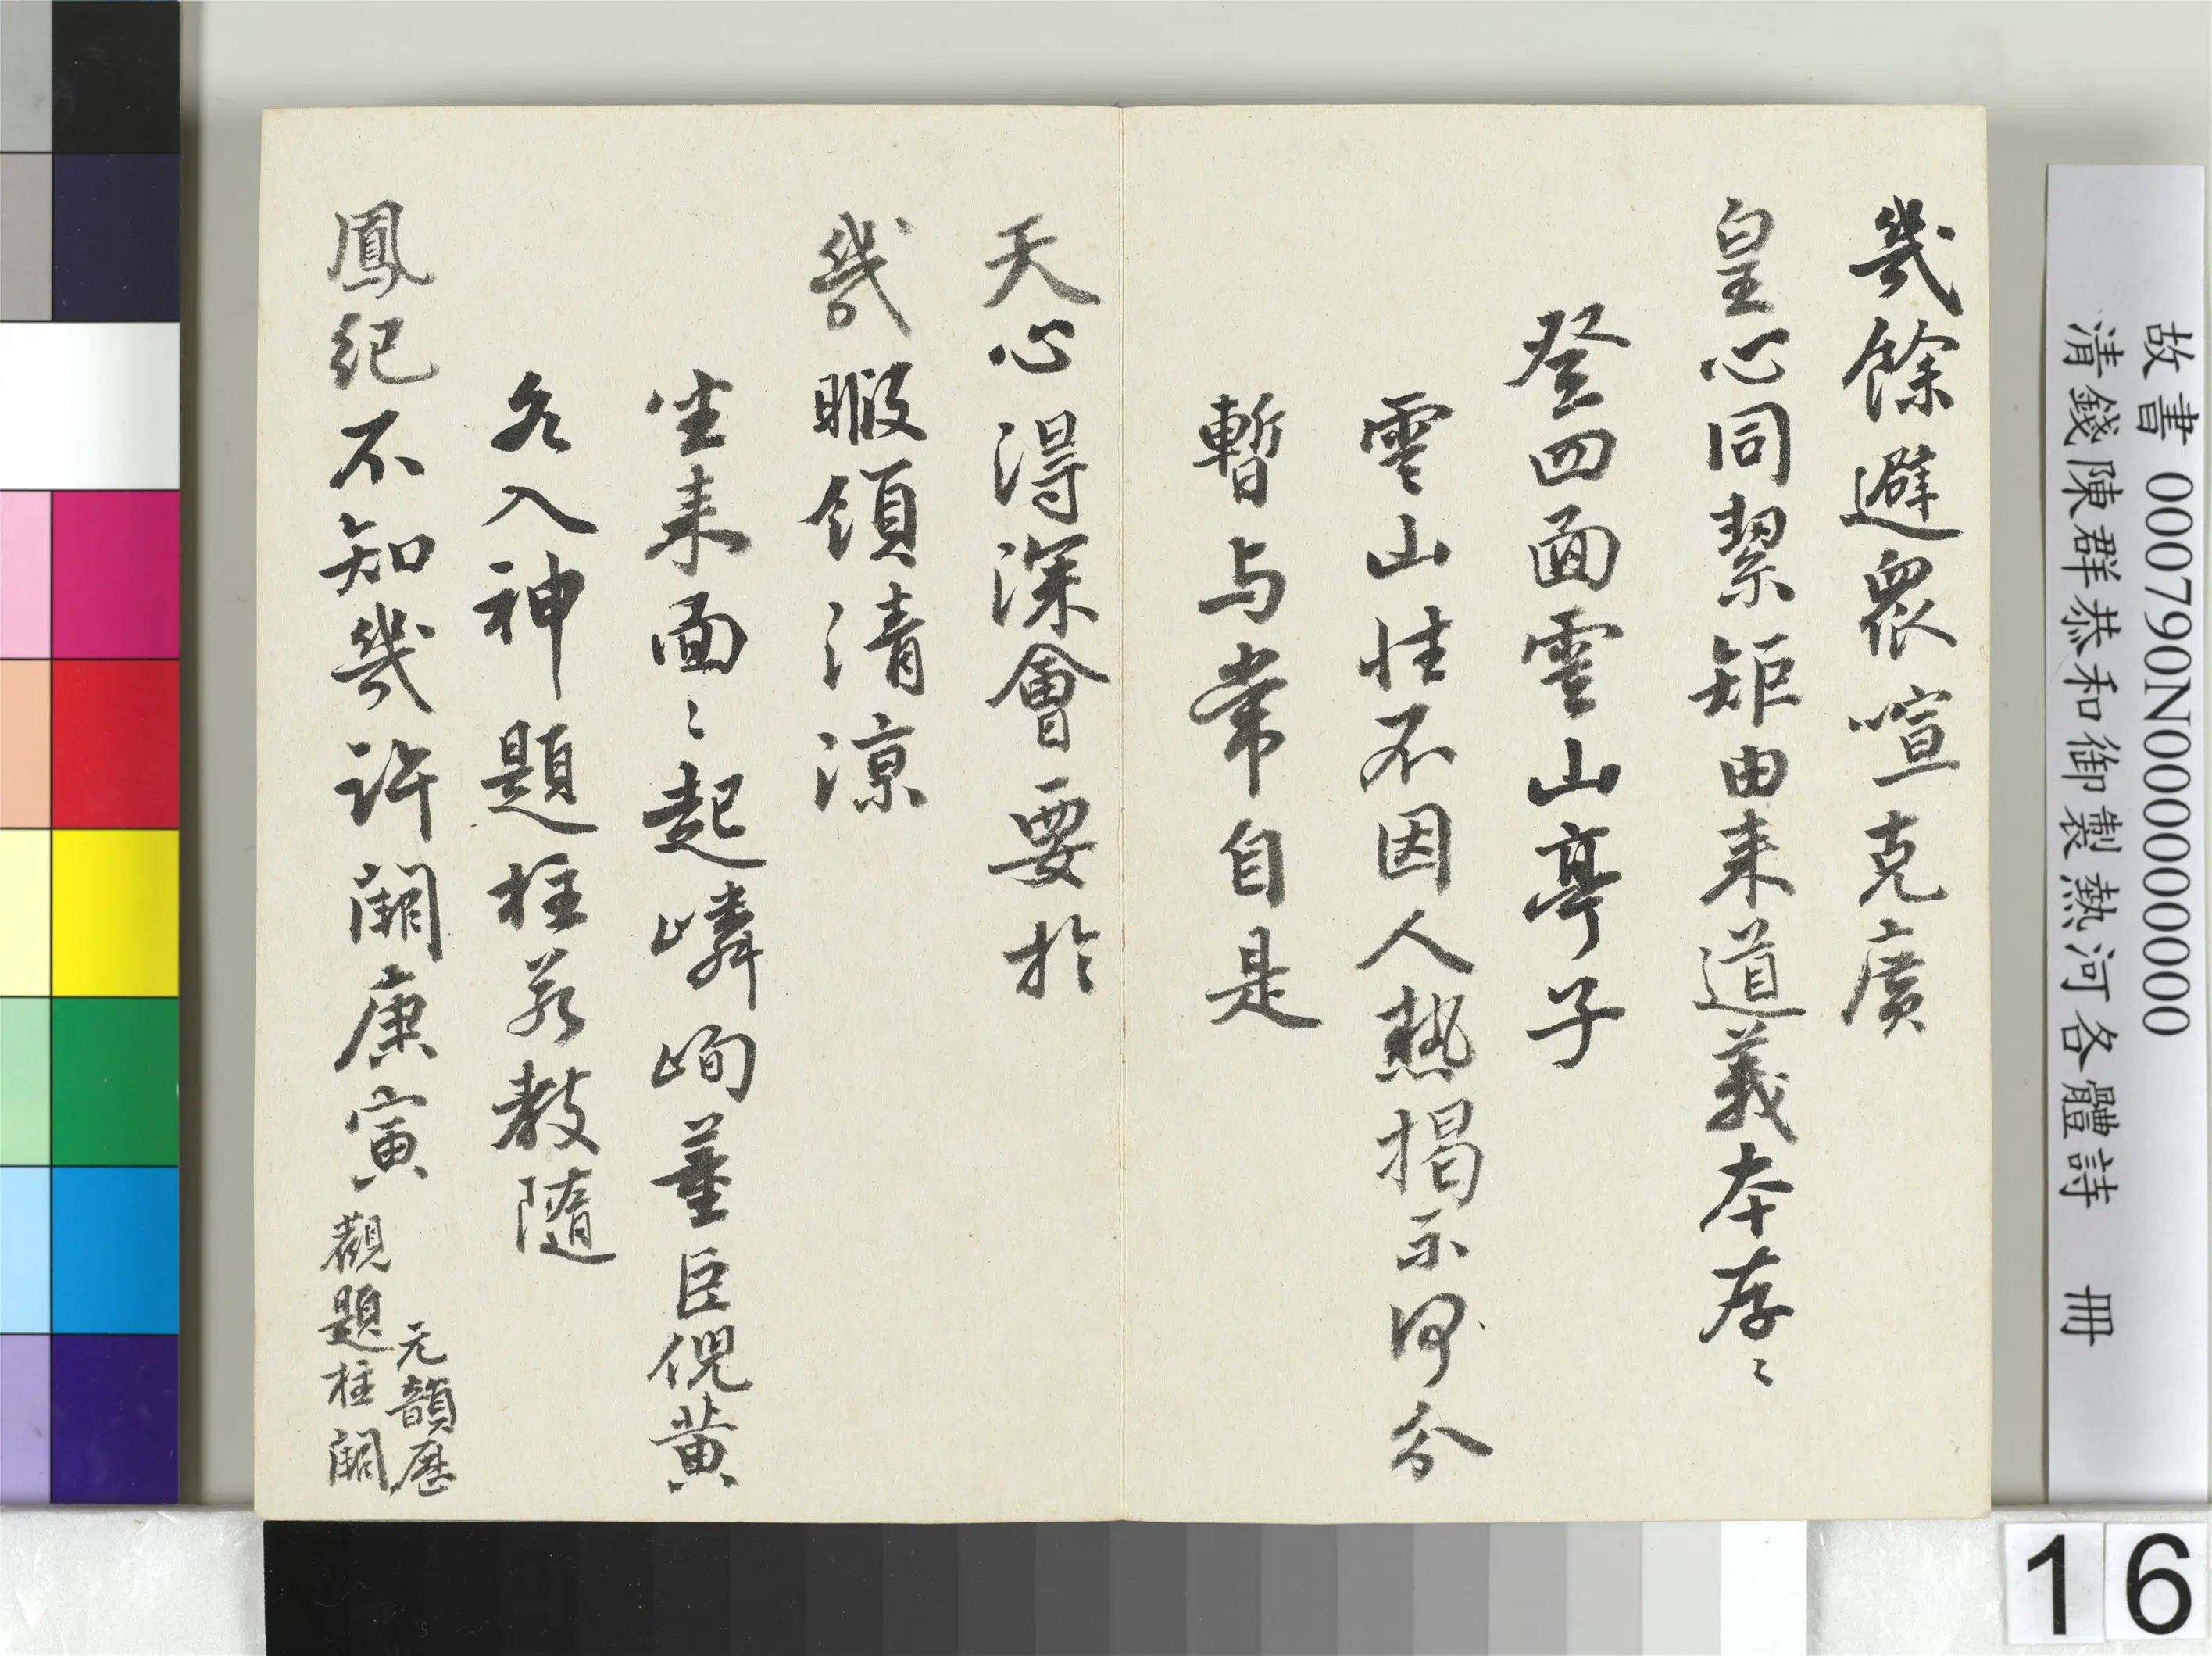 故書 000790N000000000
清錢陳群恭和御製熱河各體詩 冊
幾餘避衆喧克廣
皇心同絜矩由来道義本存〻
登四面雲山亭子
雲山性不因人熱揭示何分
暫与常自是
天心得深會要於
幾暇領清涼
坐来面〻起嶙峋董臣倪黄
各入神題柱若教隨
鳳紀不知幾許閱庚寅
元韻歷
觀題柱閱
16